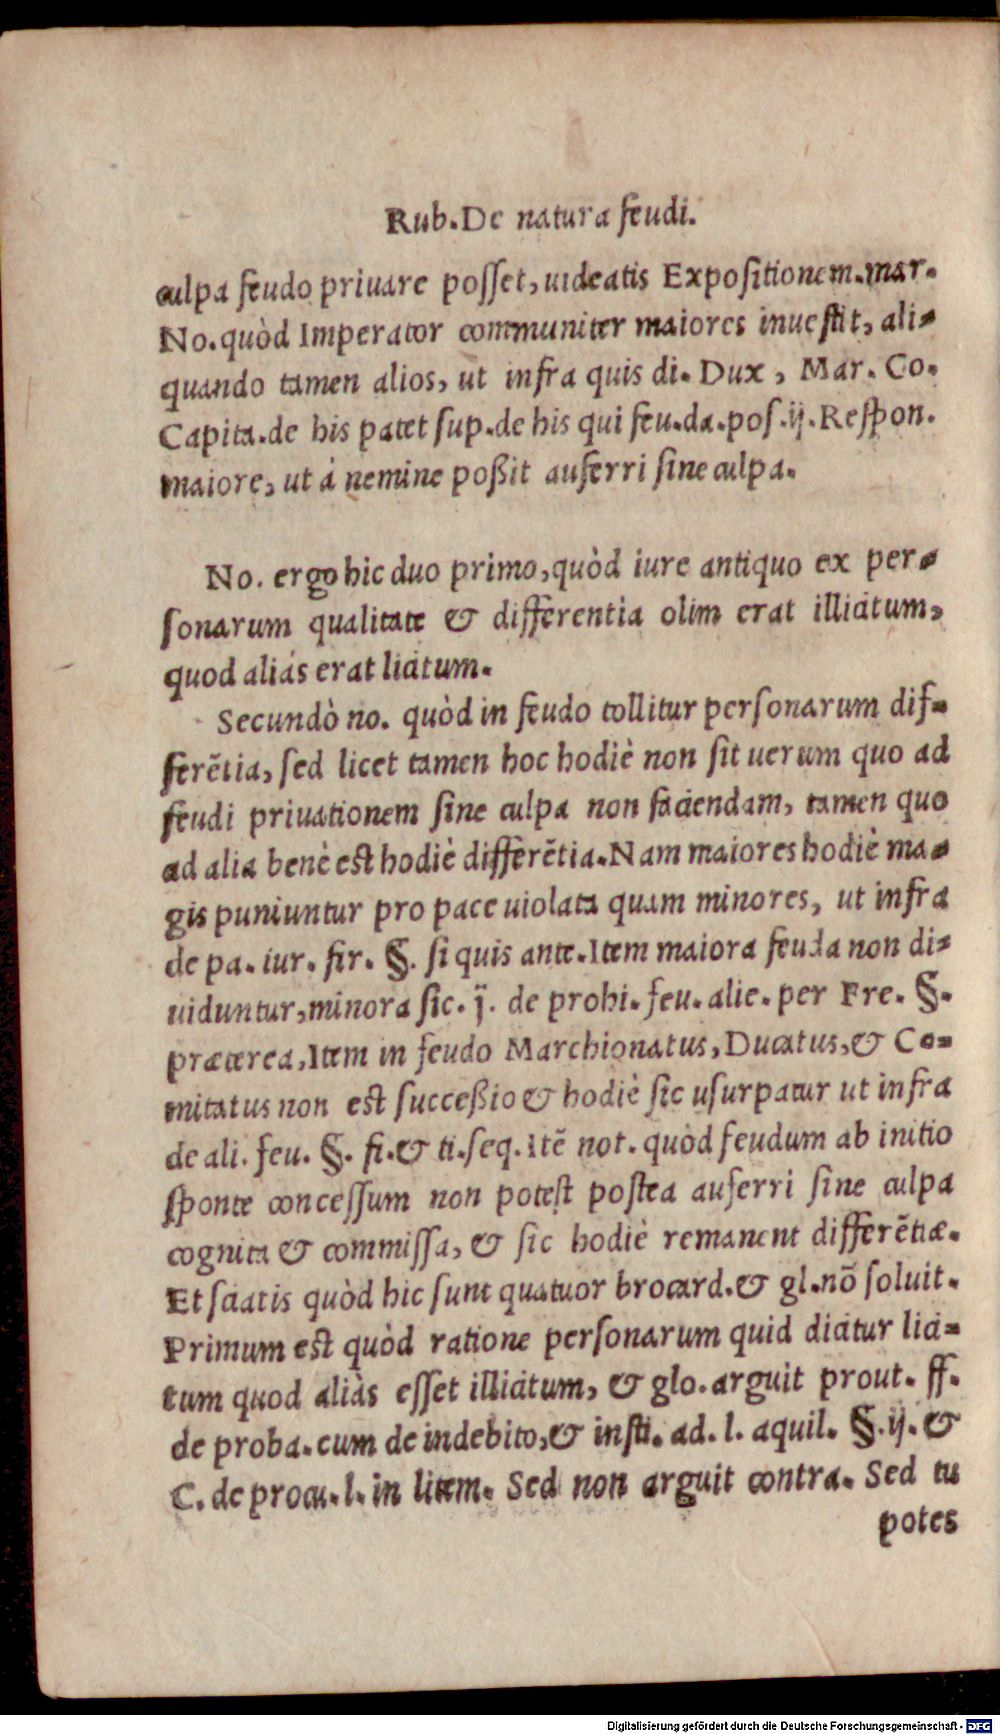 Rub. De natura feudi.
culpa feudo priuare posset, uideatis Expositionem. mar.
No. quòd Imperator communiter maiores inuestit, ali-
quando tamen alios, ut infra quis di. Dux, Mar. Co.
Capita. de his patet sup. de his qui feu. da. pos. ij. Respon.
maiore, ut à nemine poßit auferri sine culpa.
No. ergo hic duo primo, quòd iure antiquo ex per-
sonarum qualitate & differentia olim erat illicitum,
quod aliàs erat licitum.
Secundò no. quòd in feudo tollitur personarum dif-
ferētia, sed licet tamen hoc hodiè non sit uerum quo ad
feudi priuationem sine culpa non faciendam, tamen quo
ad alia benè est hodiè differētia. Nam maiores hodiè ma-
gis puniuntur pro pace uiolata quam minores, ut infra
de pa. iur. fir. §. si quis ante. Item maiora feuda non di-
uiduntur, minora sic. j. de prohi. feu. alie. per Fre. §.
præterea, Item in feudo Marchionatus, Ducatus, & Co-
mitatus non est succeßio & hodiè sic usurpatur ut infra
de ali. feu. §. fi. & ti. seq. Itē not. quòd feudum ab initio
sponte concessum non potest postea auferri sine culpa
cognita & commissa, & sic hodiè remanent differētiæ.
Et sciatis quòd hic sunt quatuor brocard. & gl. nō soluit.
Primum est quòd ratione personarum quid dicitur lici-
tum quod aliàs esset illicitum, & glo. arguit prout. ff.
de proba. cum de indebito, & insti. ad. l. aquil. §. ij. &
C. de procu. l. in litem. Sed non arguit contra. Sed tu
potes
Digitalisierung gefördert durch die Deutsche Forschungsgemeinschaft - DFG